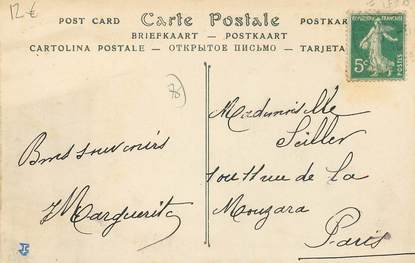 12 €
POST CARD Carte Postale POSTKAR
BRIEFKAART — POSTKAART
CARTOLINA POSTALE — ОТКРЫТОЕ ПИСЬМО — TARJETA
REPUBLIQUE FRANÇAISE
5c
POSTES
Bons souvenirs
Marguerite
Mademoiselle
Seiller
rue de La
Mouzara
Paris